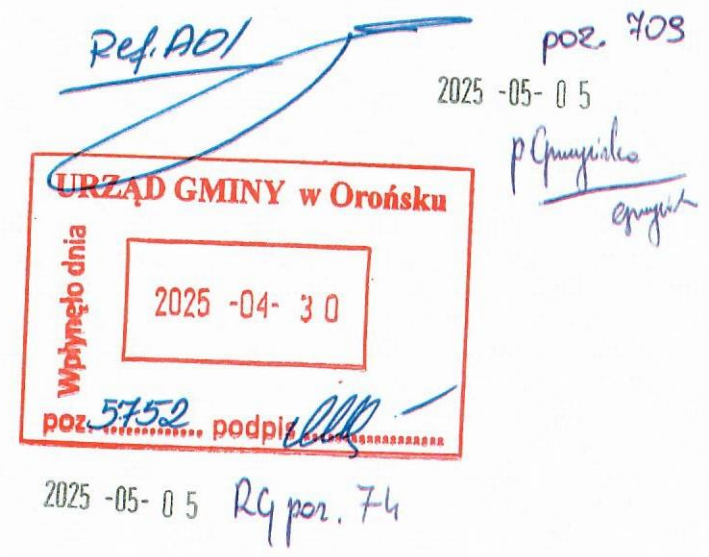 Ref. AOI
poz. 709
2025 -05- 05
URZĄD GMINY w Orońsku
Wpłynęło dnia
2025 -04- 30
poz. 5752 podpis
2025 -05- 05 RG poz. 74